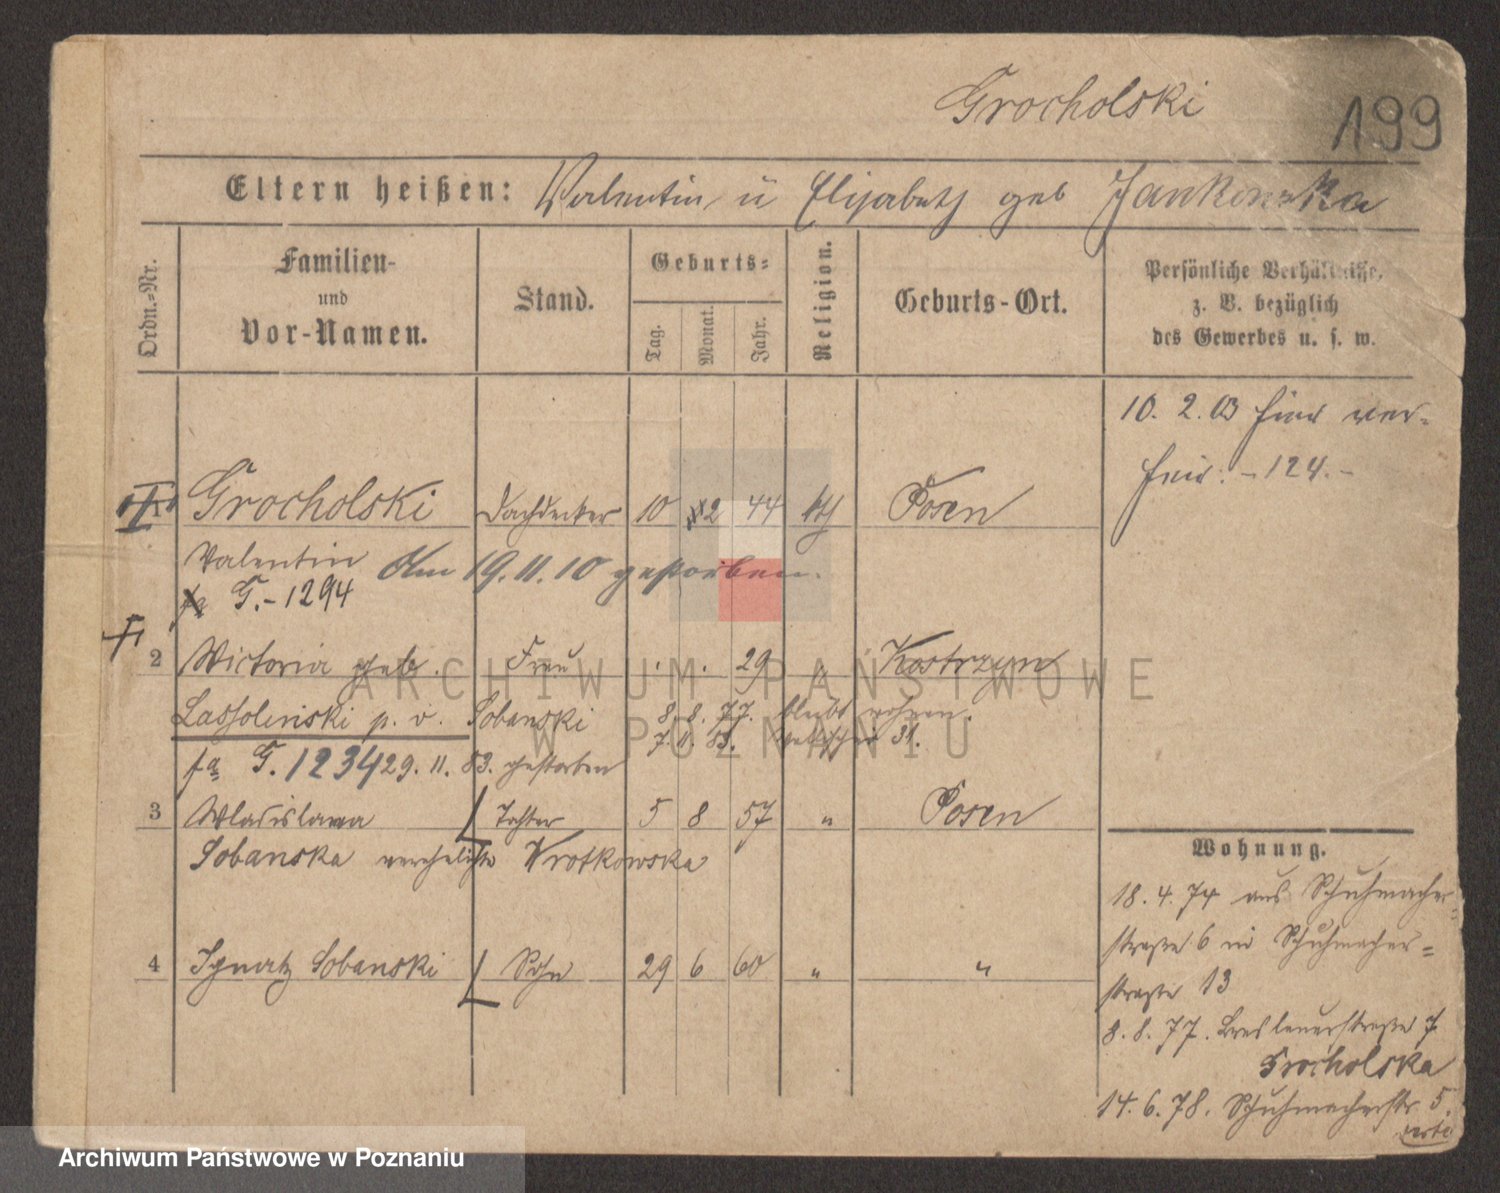 Grocholski
199
Eltern heißen: Valentin u Elisabeth geb Jankowska
Ordn.=Nr.
Familien-
und
Vor-Namen.
Stand.
Geburts=
Tag.
Monat.
Jahr.
Religion.
Geburts-Ort.
Persönliche Verhältnisse,
z. B. bezüglich
des Gewerbes u. s. w.
10. 2. 03 hier ver-
124.
Grocholski Dachdecker 10 2 44 kth Posen
Valentin Am 19.11.10 gestorben.
fa G.-1294
2 Victoria geb. Frau . . 29 " Kostrzyn
p. v. Sobanski 8. 8. 77. bleibt wohnen.
7. 11. 83. 31.
fa G. 1234 29. 11. 83. gestorben
3 Wladislawa Tochter 5 8 57 " Posen
Sobanska verehelichte Krotkowska
4 Ignatz Sobanski Sohn 29 6 60 " "
Wohnung.
18. 4. 74 aus Schuhmacher=
straße 6 in Schuhmacher=
straße 13
8. 8. 77. Breslauerstraße 7
Grocholska
14. 6. 78. Schuhmacherstr 5.
ARCHIWUM PAŃSTWOWE
W POZNANIU
Archiwum Państwowe w Poznaniu